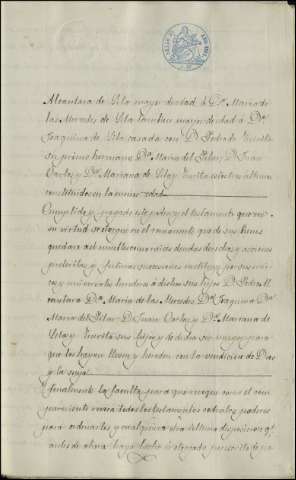 Alcantara de Sila mayor de edad á Dª Maria de
las Mercedes de Sila tambien mayor de edad á Dª
Joaquina de Sila casada con D. Pedro de
su primo hermano Dª Maria del Pilar, D. Juan
Carlos y Dª Mariana de Sila y estos ultimos
constituidos en la menor edad.
Cumplido y pagado este poder y el testamento que en
su virtud se otorgue en el remanente que de sus bienes
quedare asi muebles como raices deudas derechos y acciones
presentes y futuras sucesiones instituye por sus unicos
y universales herederos á dichos sus hijos D. Pedro Al
cantara Dª Maria de las Mercedes Dª Joaquina Dª
Maria del Pilar D. Juan Carlos y Dª Mariana de
Sila y sus hijos y de dicha su para
que los hayan lleven y hereden con la bendicion de Dios
y la suya.
Y finalmente la faculta para que revoque como el com
pareciente revoca todos los testamentos codicilos poderes
para ordenarlos y cualquiera otra ultima disposicion qᵉ
antes de ahora haya hecho ú otorgado por escrito de pa